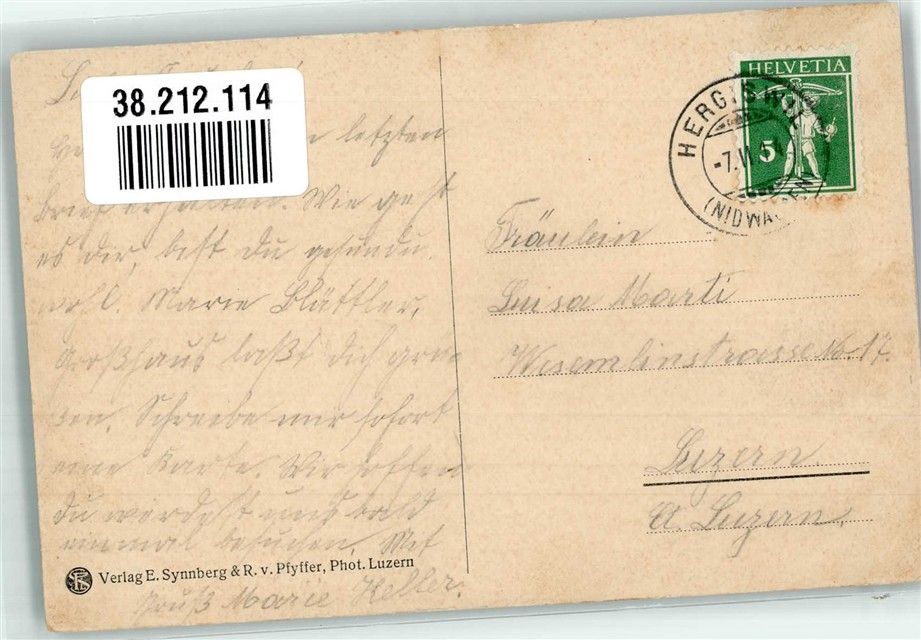 38.212.114
letzten
Brief erhalten. Wie geht
es dir, bist du gesund u.
wohl. Marie Blättler,
Großhaus laßt dich grü-
ßen. Schreibe mir sofort
eine Karte. Wir hoffen
du werdest uns bald
einmal besuchen. Mit
Gruß Marie Keller.
Verlag E. Synnberg & R. v. Pfyffer, Phot. Luzern
HELVETIA
5
HERGISWIL
-7.VI.
(NIDWALDEN)
Fräulein
Luisa Marti
Wesemlinstrasse No. 17.
Luzern.
Ct. Luzern.